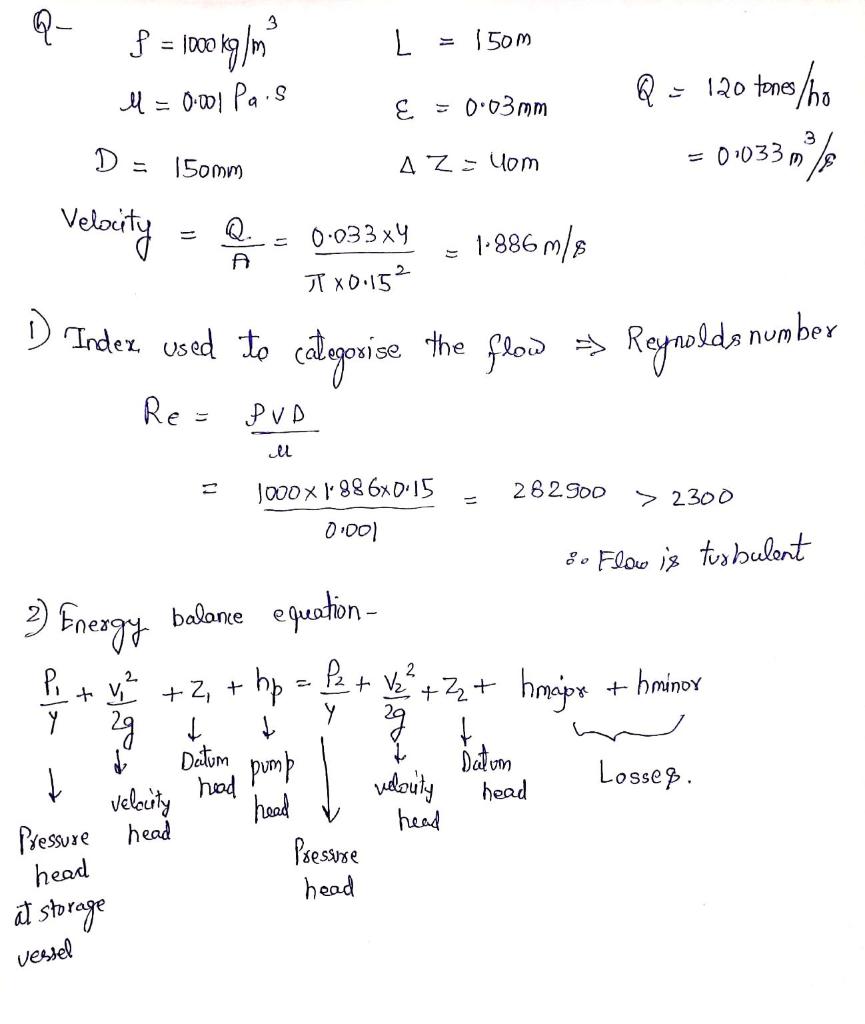 Q- ρ = 1000 kg/m³ L = 150m
μ = 0.001 Pa.s ε = 0.03mm Q = 120 tones/hr
D = 150mm Δ Z = 40m = 0.033 m³/s
Velocity = Q/A = 0.033x4 / π x 0.15² = 1.886 m/s
1) Index used to categorise the flow ⇒ Reynolds number
Re = ρVD / μ
= 1000 x 1.886x0.15 / 0.001 = 282900 > 2300
∴ Flow is turbulent
2) Energy balance equation-
P₁/γ + V₁²/2g + Z₁ + hp = P₂/γ + V₂²/2g + Z₂ + hmajor + hminor
↓ Pressure head at storage vessel
↓ velocity head
↓ Datum head
↓ pump head
↓ Pressure head
↓ velocity head
↓ Datum head
Losses.